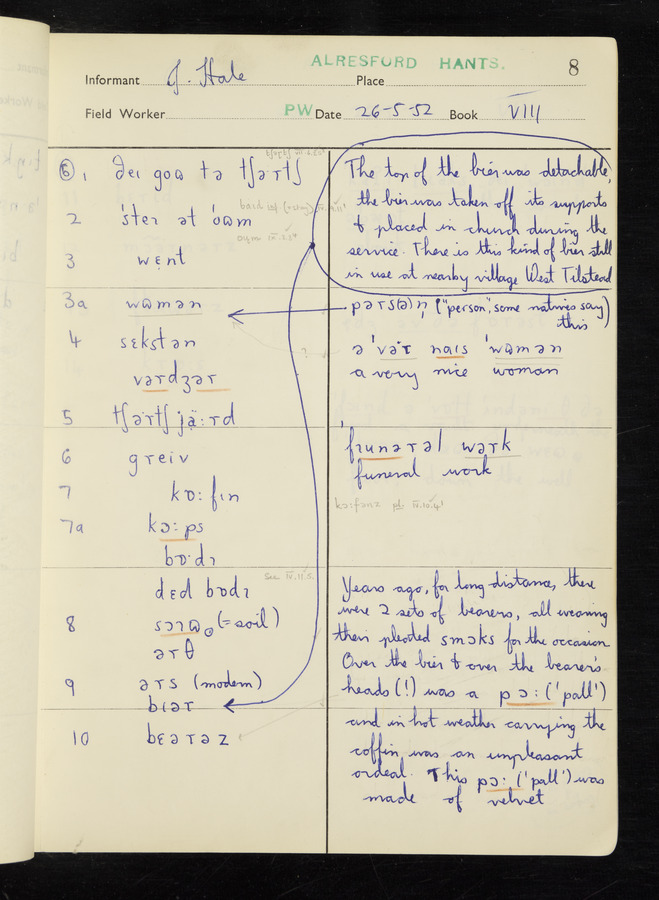 ALRESFORD HANTS.
8
Informant J. Hale Place
Field Worker PW Date 26-5-52 Book VIII
⑥ 1 ðeɪ goʊ tə tʃəːrtʃ
2 'steɪ ət 'oʊm
3 wɛnt
3a wʊmən
4 sɛkstən
vərdʒər
5 tʃərtʃ jaːrd
6 greiv
7 kɒːfɪn
7a kɔːps
bɒdɪ
dɛd bɒdɪ
See IV.11.5.
8 (= soil)
ərθ
9 ərs (modern)
bɪər
10 bɛərəz
The top of the bier was detachable,
the bier was taken off its supports
& placed in church during the
service. There is this kind of bier still
in use at nearby village West Tilstead
pərs(ə)n̩ ("person", some natives say)
this
ə 'vər naɪs 'wʊmən
a very nice woman
'frunərəl wərk
funeral work
kɔːfənz pl. IV.10.4'
Years ago, for long distance, there
were 2 sets of bearers, all wearing
their pleated smɔks for the occasion
Over the bier & over the bearer's
heads (!) was a pɔː ('pall')
and in hot weather carrying the
coffin was an unpleasant
ordeal. This pɔː ('pall') was
made of velvet